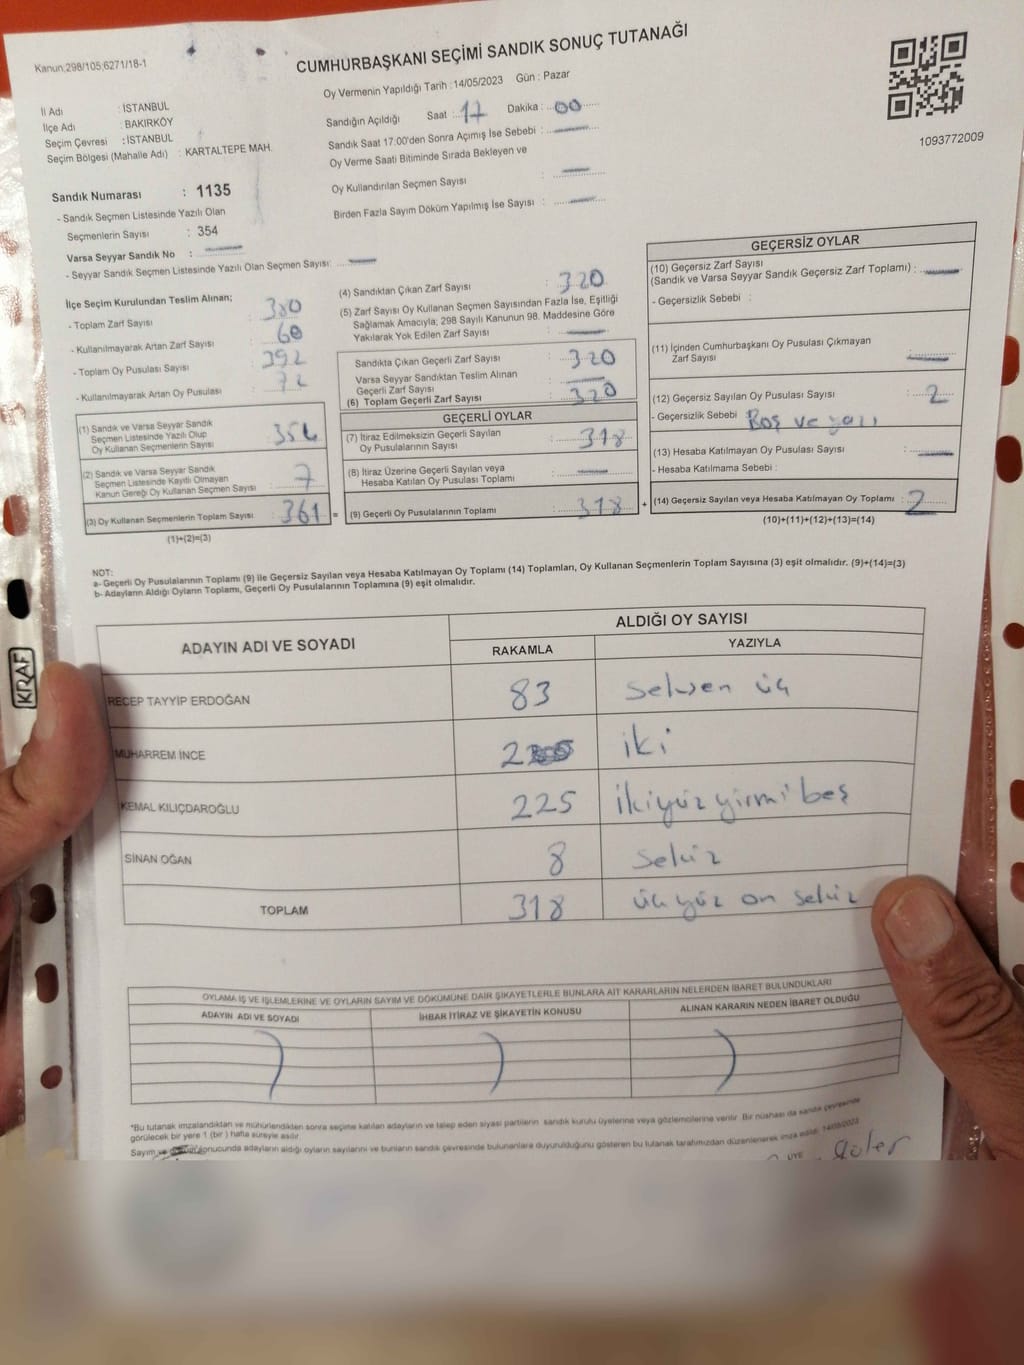 Kanun;298/105;6271/18-1
CUMHURBAŞKANI SEÇİMİ SANDIK SONUÇ TUTANAĞI
Oy Vermenin Yapıldığı Tarih : 14/05/2023 Gün : Pazar
İl Adı : İSTANBUL
İlçe Adı : BAKIRKÖY
Seçim Çevresi : İSTANBUL
Seçim Bölgesi (Mahalle Adı) : KARTALTEPE MAH.
Sandığın Açıldığı Saat : 17 Dakika : 00
Sandık Saat 17:00'den Sonra Açımış İse Sebebi :
Oy Verme Saati Bitiminde Sırada Bekleyen ve
Oy Kullandırılan Seçmen Sayısı :
Birden Fazla Sayım Döküm Yapılmış İse Sayısı :
1093772009
Sandık Numarası : 1135
- Sandık Seçmen Listesinde Yazılı Olan
Seçmenlerin Sayısı : 354
Varsa Seyyar Sandık No :
- Seyyar Sandık Seçmen Listesinde Yazılı Olan Seçmen Sayısı:
İlçe Seçim Kurulundan Teslim Alınan;
- Toplam Zarf Sayısı : 380
- Kullanılmayarak Artan Zarf Sayısı : 60
- Toplam Oy Pusulası Sayısı : 392
- Kullanılmayarak Artan Oy Pusulası : 72
(1) Sandık ve Varsa Seyyar Sandık
Seçmen Listesinde Yazılı Olup
Oy Kullanan Seçmenlerin Sayısı : 354
(2) Sandık ve Varsa Seyyar Sandık
Seçmen Listesinde Kayıtlı Olmayan
Kanun Gereği Oy Kullanan Seçmen Sayısı : 7
(3) Oy Kullanan Seçmenlerin Toplam Sayısı : 361 =
(1)+(2)=(3)
(4) Sandıktan Çıkan Zarf Sayısı : 320
(5) Zarf Sayısı Oy Kullanan Seçmen Sayısından Fazla İse, Eşitliği
Sağlamak Amacıyla; 298 Sayılı Kanunun 98. Maddesine Göre
Yakılarak Yok Edilen Zarf Sayısı :
Sandıkta Çıkan Geçerli Zarf Sayısı : 320
Varsa Seyyar Sandıktan Teslim Alınan
Geçerli Zarf Sayısı :
(6) Toplam Geçerli Zarf Sayısı : 320
GEÇERLİ OYLAR
(7) İtiraz Edilmeksizin Geçerli Sayılan
Oy Pusulalarının Sayısı : 318
(8) İtiraz Üzerine Geçerli Sayılan veya
Hesaba Katılan Oy Pusulası Toplamı :
(9) Geçerli Oy Pusulalarının Toplamı : 318 +
GEÇERSİZ OYLAR
(10) Geçersiz Zarf Sayısı
(Sandık ve Varsa Seyyar Sandık Geçersiz Zarf Toplamı) :
- Geçersizlik Sebebi :
(11) İçinden Cumhurbaşkanı Oy Pusulası Çıkmayan
Zarf Sayısı :
(12) Geçersiz Sayılan Oy Pusulası Sayısı : 2
- Geçersizlik Sebebi Boş ve yazı
(13) Hesaba Katılmayan Oy Pusulası Sayısı :
- Hesaba Katılmama Sebebi :
(14) Geçersiz Sayılan veya Hesaba Katılmayan Oy Toplamı : 2
(10)+(11)+(12)+(13)=(14)
NOT:
a- Geçerli Oy Pusulalarının Toplamı (9) ile Geçersiz Sayılan veya Hesaba Katılmayan Oy Toplamı (14) Toplamları, Oy Kullanan Seçmenlerin Toplam Sayısına (3) eşit olmalıdır. (9)+(14)=(3)
b- Adayların Aldığı Oyların Toplamı, Geçerli Oy Pusulalarının Toplamına (9) eşit olmalıdır.
ADAYIN ADI VE SOYADI
ALDIĞI OY SAYISI
RAKAMLA YAZIYLA
RECEP TAYYİP ERDOĞAN 83 seksen üç
MUHARREM İNCE 2 iki
KEMAL KILIÇDAROĞLU 225 ikiyüzyirmibeş
SİNAN OĞAN 8 sekiz
TOPLAM 318 üçyüz on sekiz
OYLAMA İŞ VE İŞLEMLERİNE VE OYLARIN SAYIM VE DÖKÜMÜNE DAİR ŞİKAYETLERLE BUNLARA AİT KARARLARIN NELERDEN İBARET BULUNDUKLARI
ADAYIN ADI VE SOYADI İHBAR İTİRAZ VE ŞİKAYETİN KONUSU ALINAN KARARIN NEDEN İBARET OLDUĞU
*Bu tutanak imzalandıktan ve mühürlendikten sonra seçime katılan adayların ve talep eden siyasi partilerin sandık kurulu üyelerine veya gözlemcilerine verilir. Bir nüshası da sandık çevresinde
görülecek bir yere 1 (bir) hafta süreyle asılır.
Sayım ve döküm sonucunda adayların aldığı oyların sayılarını ve bunların sandık çevresinde bulunanlara duyurulduğunu gösteren bu tutanak tarafımızdan düzenlenerek imza edildi. 14/05/2023
ÜYE
KRAF